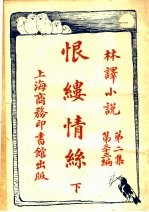 林譯小說
第二集
恨縷情絲
下
上海商務印書館出版